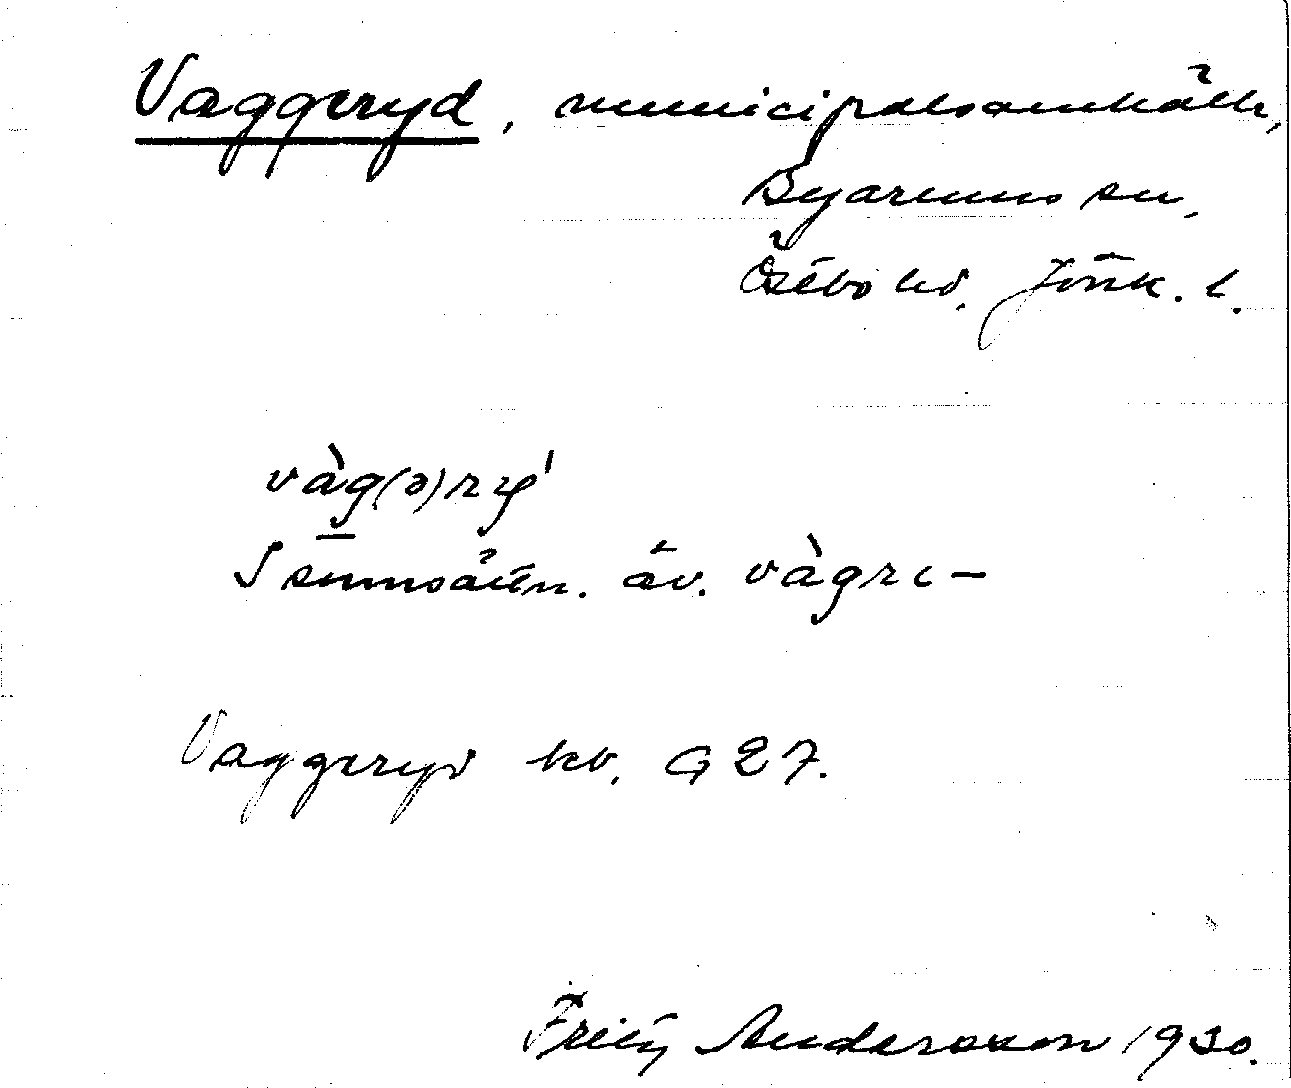 Vaggeryd, municipalsamhälle,
Byarums sn,
Östbo hd. Jönk. l.
vàg(ə)ry̨ˈ
I sms äv. vàgrɩ –
Vaggeryd kb. G 27.
Fritz Andersson 1930.